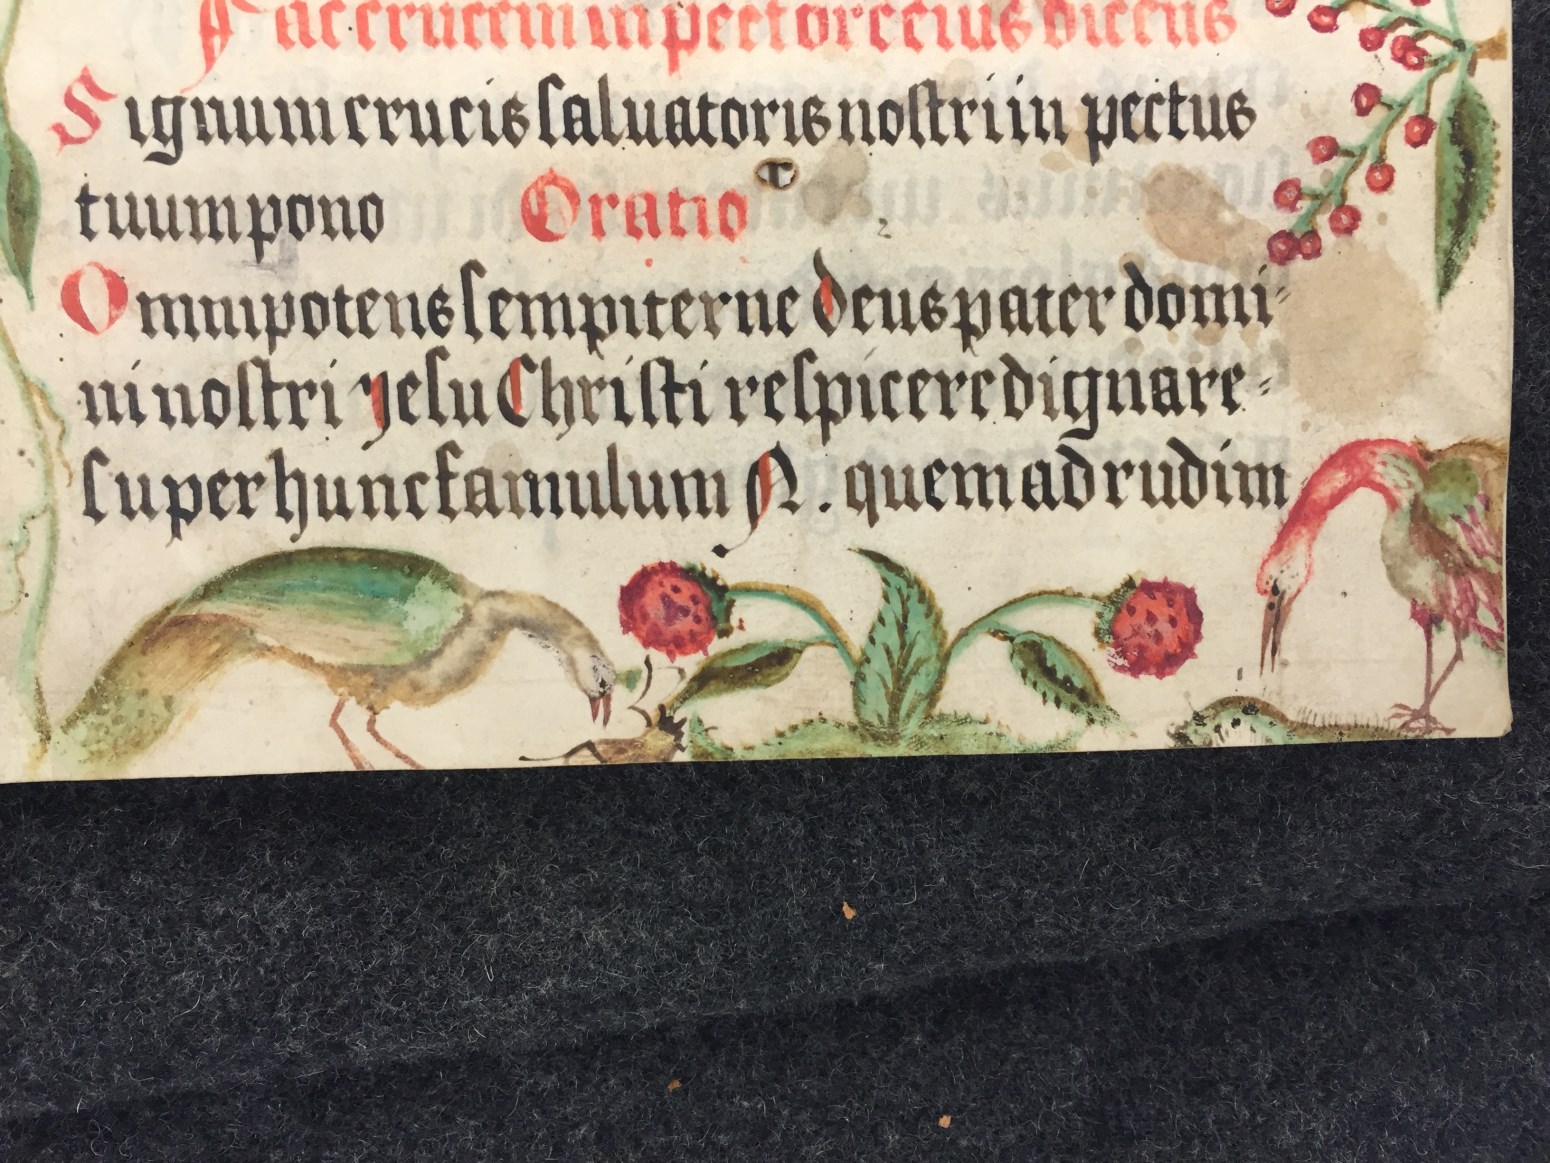 Fac crucem in pectore eius dicens
Signum crucis saluatoris nostri in pectus
tuum pono Oratio
Omnipotens sempiterne deus pater domi-
ni nostri yesu Christi respicere dignare-
super hunc famulum N. quem ad rudim